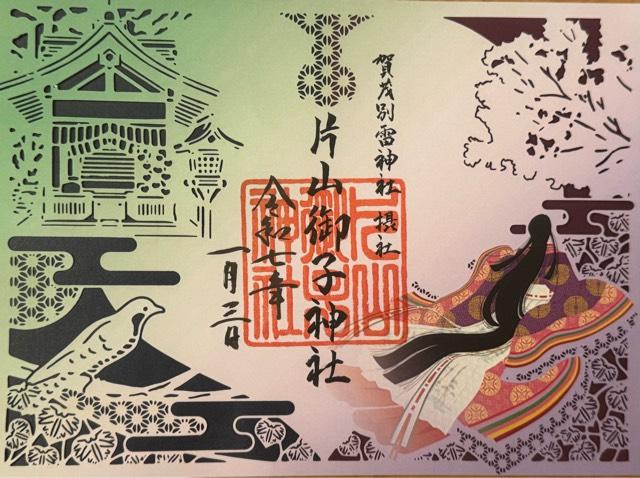 賀茂別雷神社 摂社
片山御子神社
令和七年
一月三日
片山
御子
神社